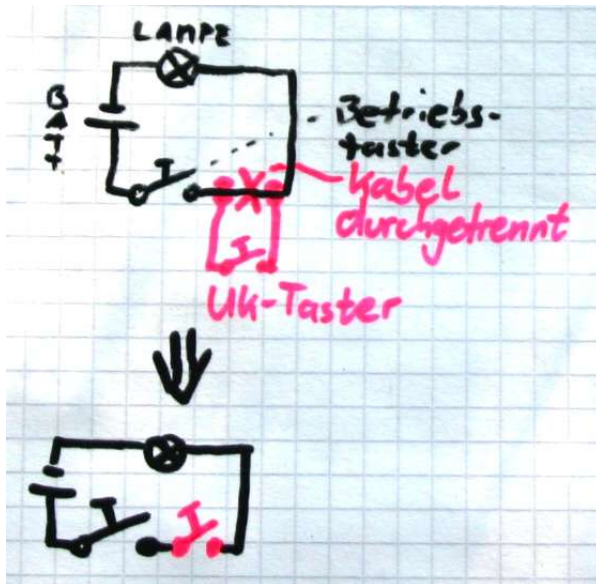 LAMPE
BATT
Betriebs-
taster
Kabel
durchgetrennt
UK-Taster